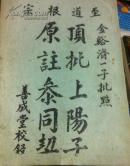 至道根
金谿濟一子批點
頂批上陽子
原註參同契
善成堂校錄